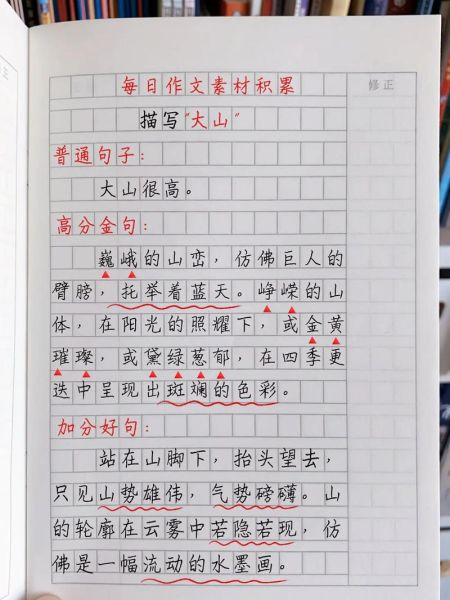 每日作文素材积累
修正
描写“大山”
普通句子：
大山很高。
高分金句：
巍峨的山峦，仿佛巨人的
臂膀，托举着蓝天。峥嵘的山
体，在阳光的照耀下，或金黄
璀璨，或黛绿葱郁，在四季更
迭中呈现出斑斓的色彩。
加分好句：
站在山脚下，抬头望去，
只见山势雄伟，气势磅礴。山
的轮廓在云雾中若隐若现，仿
佛是一幅流动的水墨画。